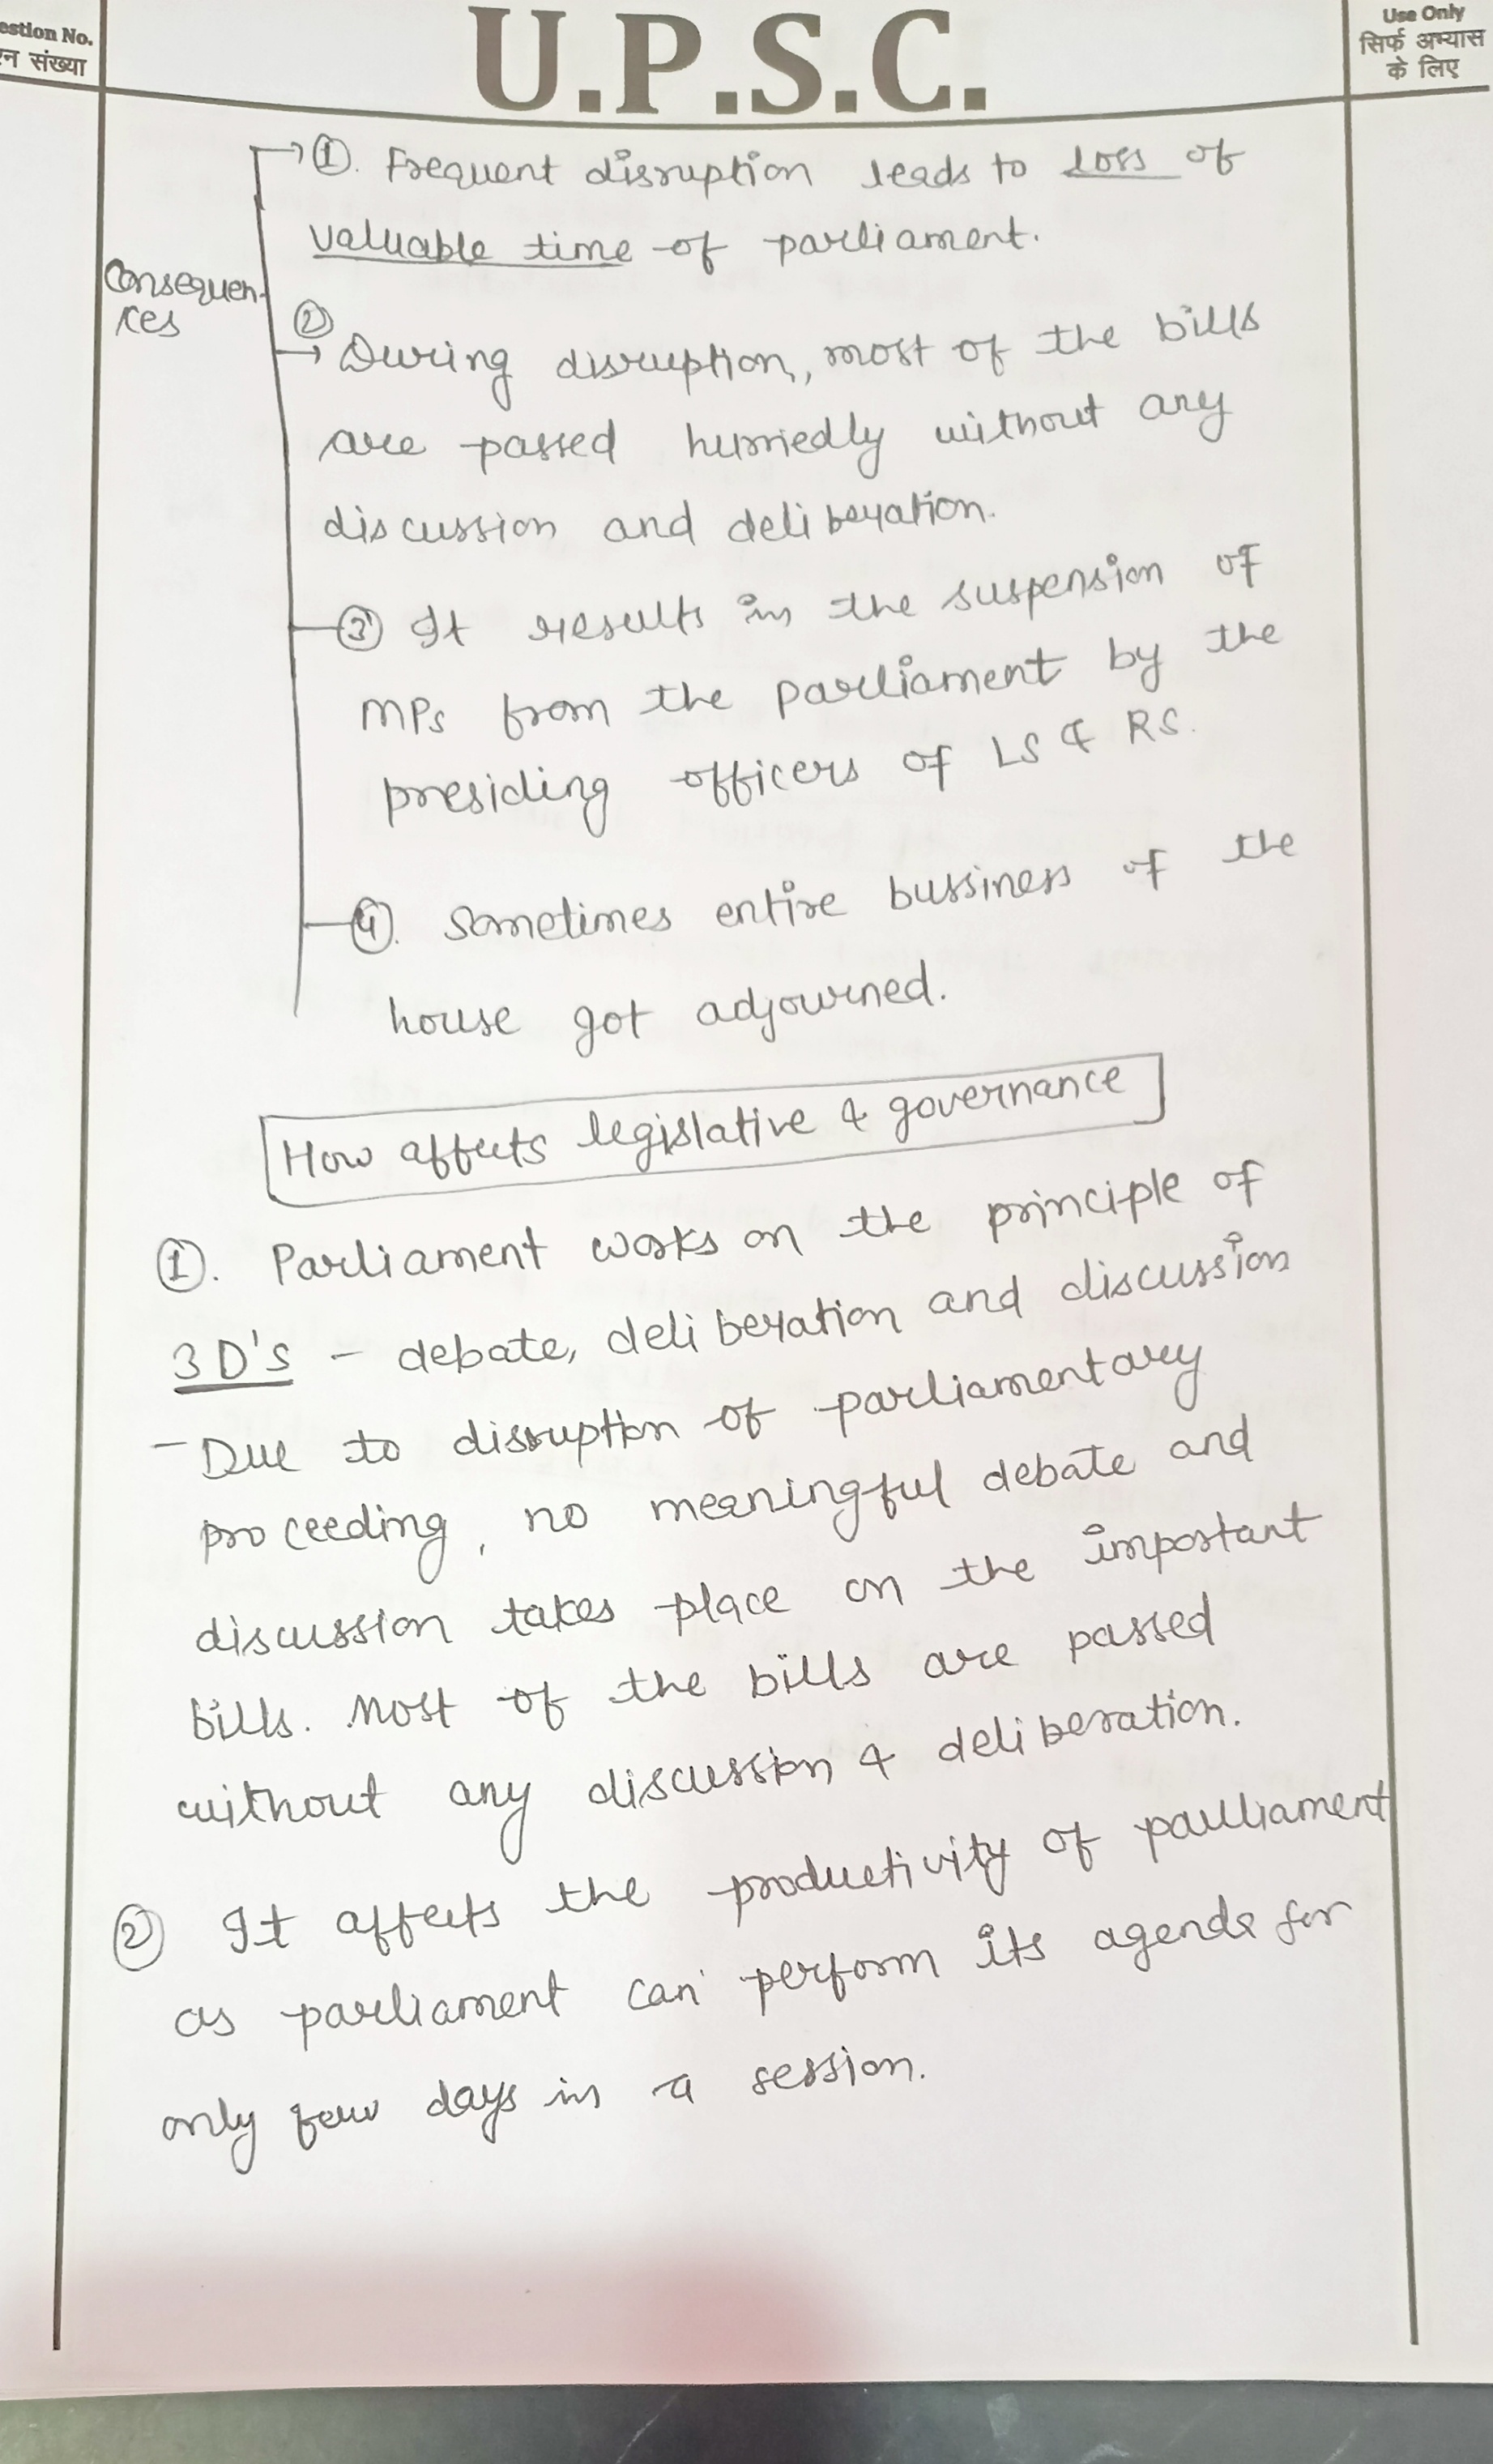 estion No.
न संख्या
U.P.S.C.
Use Only
सिर्फ अभ्यास
के लिए
→ ①. Frequent disruption leads to loss of
valuable time of parliament.
Consequen-
ces
②
→ During disruption, most of the bills
are passed hurriedly without any
discussion and deliberation.
③ It results in the suspension of
MPs from the parliament by the
presiding officers of LS & RS.
④. Sometimes entire bussiness of the
house got adjourned.
How affects legislative & governance
①. Parliament works on the principle of
3 D's - debate, deliberation and discussion
- Due to disruption of parliamentary
proceeding, no meaningful debate and
discussion takes place on the important
bills. Most of the bills are passed
without any discussion & deliberation.
② It affects the productivity of parliament
as parliament can perform its agenda for
only few days in a session.